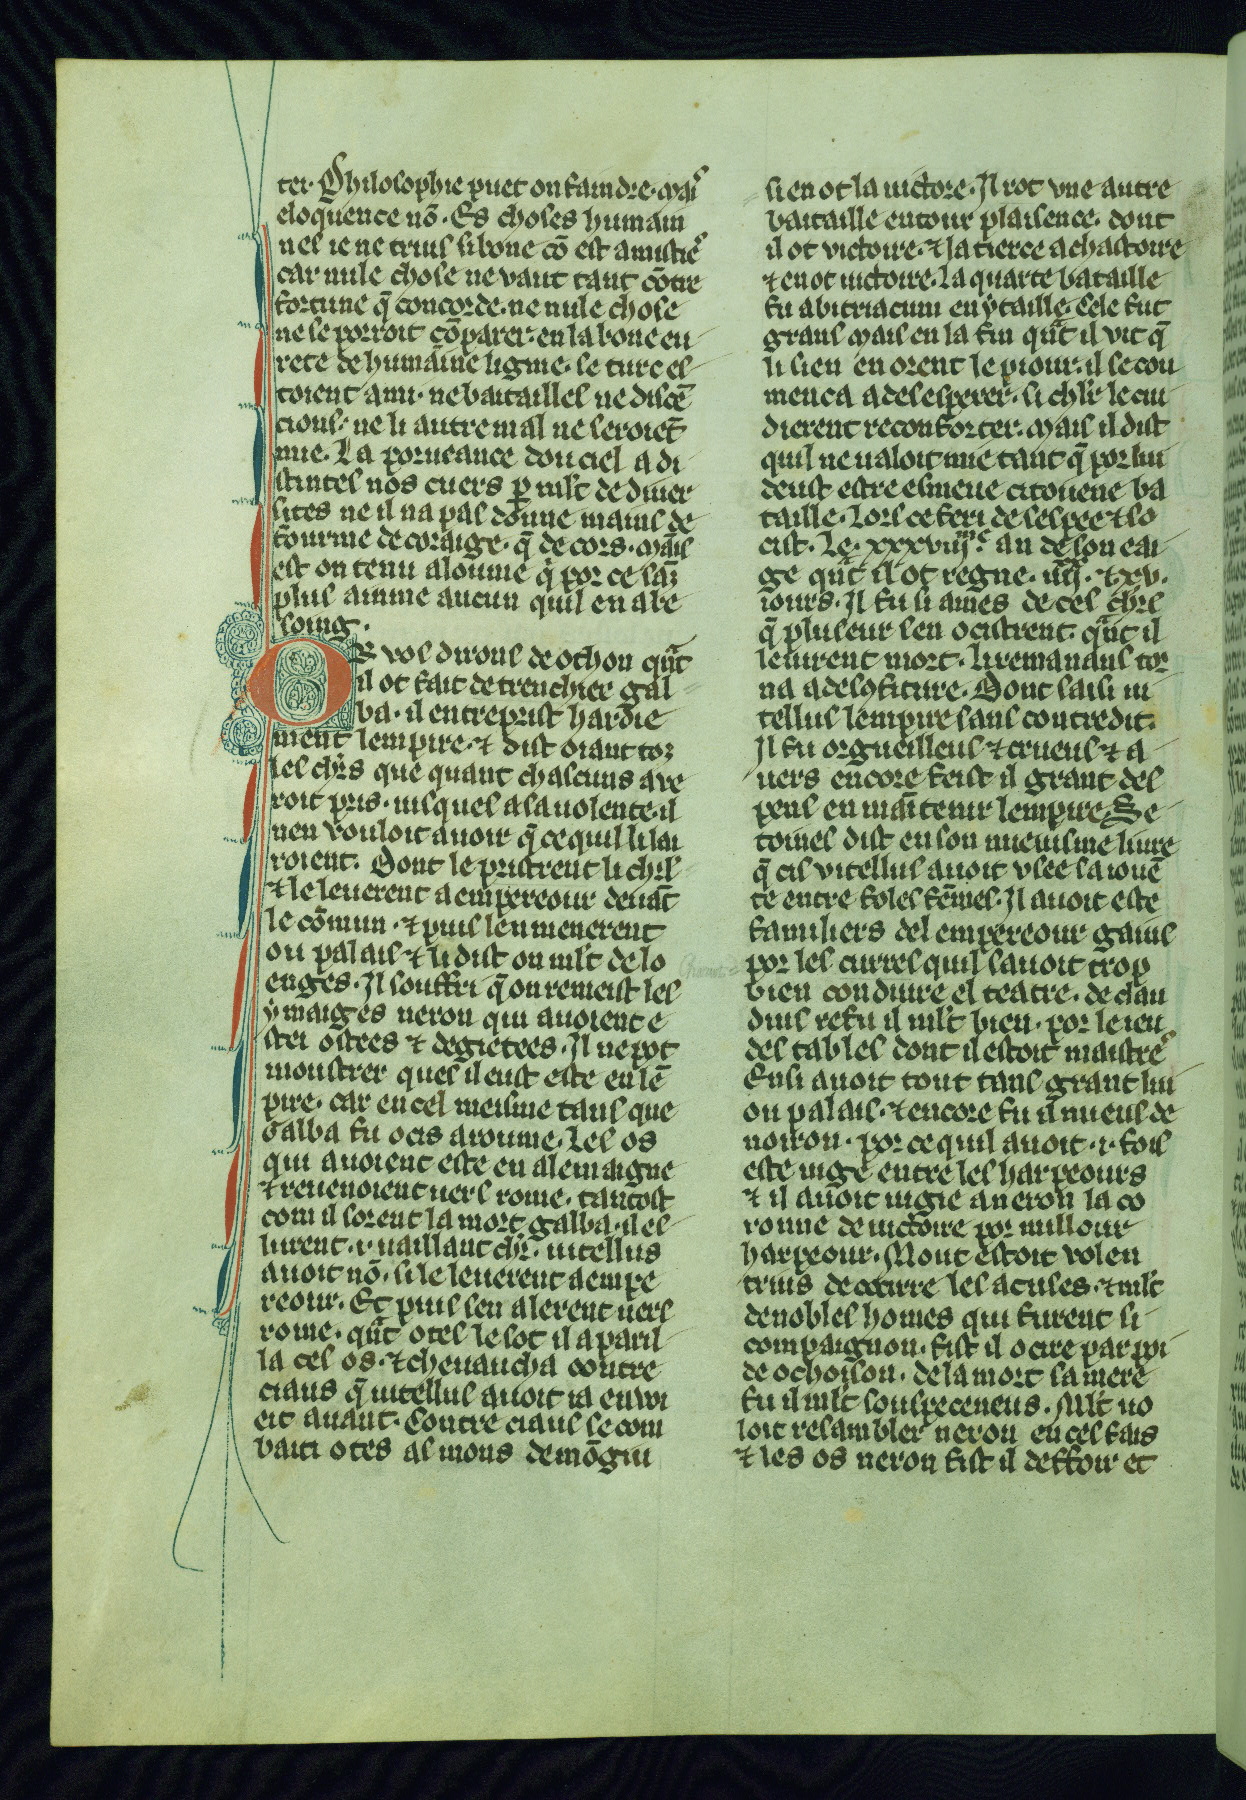 ter. Philosophie puet on faindre. mais
eloquence nō. Es choses humain
nes ie ne truis si bone cō est amistie
car nule chose ne vaut tant cōtre
fortune q̄ concorde. ne nule chose
ne se porroit cōparer. en la bone eu
rete de humaine lignie. se tuit es
toient ami. ne batailles ne discē
cions. ne li autre mal ne seroiēt
mie. La porueance dou ciel a di
stintes nos cuers p mlt de diuer
sites ne il na pas donne mains de
fourme de coraige. q̄ de cors. mais
est on tenu a loume q̄ por ce san
plus aimme aucun quil en a be
soing.
Or vos dirons de othon qūt
il ot fait de trenchier gal
ba. il entreprist hardie
ment lempire. ⁊ dist oiant toz
les chrs que quant chascuns ave
roit pris. iusques a sa volente. il
nen vouloit avoir q̄ ce quil li lai
roient. Dont le pristrent li chrs
⁊ le leuerent a empereour deuāt
le cōmun. ⁊ puis len menerent
ou palais ⁊ li dist on mlt de lo
enges. Il souffri q̄ on remeist les
ymaiges neron qui auoient e
stei ostees ⁊ degietees. Il ne pot
moustrer ques il eust este en lē
pire. car en cel meisme tans que
Galba fu ocis a roume. Les os
qui auoient este en alemaigne
⁊ reuenoient uers rome. tantost
com il sorent la mort galba. il es
lurent .i. uaillant chr. uitellus
auoit nō. si le leuerent a empe
reour. Et puis sen alerent uers
rome. qūt otes le sot il aparil
la ces os. ⁊ cheuaucha contre
ciaus q̄ uitellus auoit ia enuoi
eit auant. Contre ciaus se com
bati otes as mons de mōgiu
si en ot la uictore. Il rot vne autre
bataille entour plaisence. dont
il ot victoire. ⁊ la tierce a chastoire
⁊ en ot uictoire. La quarte bataille
fu a bitriacum en ytaille. Cele fut
grans mais en la fin qūt il vit q̄
li sien en orent le piour. il se com
menca a desesperer. si chlr le cui
dierent reconforter. mais il dist
quil ne ualoit mie tant q̄ por lui
deust estre esmeue citouene ba
taille. Lors ce feri de sespee ⁊ so
cist. Le .xxxviij.e an de son eai
ge qūt il ot regne. iiij. ⁊ xv.
iours. Il fu si ames de ces chrs
q̄ pluseur sen ocistrent. qūt il
le uirent mort. li remanans tor
na a descōfiture. Dont saisi ui
tellus lempire sans contredit.
Il fu orgueilleus ⁊ crueus ⁊ a
uers encore feist il grant des
pens en maītenir lempire. Se
toines dist en son nueuisme liure
q̄ cis vitellus auoit vsee sa iouē
te entre foles fēmes. Il auoit este
familiers del empereour gaius
por les curres quil sauoit trop
bien conduire el teatre. de clau
dius refu il mlt bien. por le ieu
des tables dont il estoit maistre
Ensi auoit tout tans grant lui
ou palais. ⁊ encore fu il mieus de
noiron. por ce quil auoit .i. fois
este iuge entre les harpeours
⁊ il auoit iugie a neron la co
ronne de uictoire por millour
harpeour. Mout estoit volen
truis de cocurre les acuses. ⁊ mlt
de nobles homes qui furent si
compaignon. fist il ocire par pei
de ochoison. de la mort sa mere
fu il mlt souspeceneus. Mlt uo
loit resambler neron en ces fais
⁊ les os neron fist il deffoir et